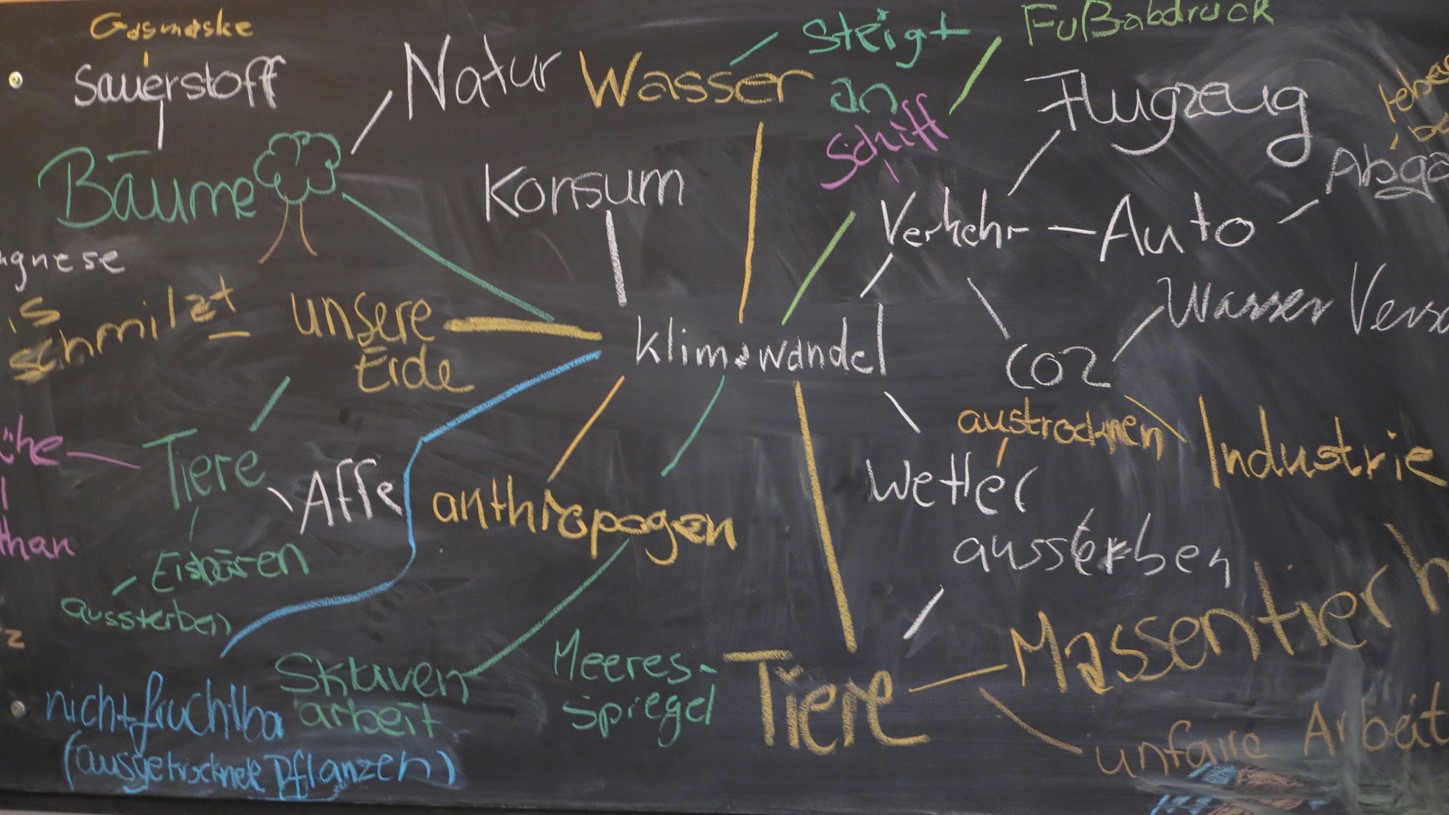 Gasmaske
Sauerstoff
Natur
Wasser
steigt
an
Fußabdruck
Schiff
Flugzeug
Bäume
Konsum
Verkehr
Auto
unsere
Erde
schmilzt
klimawandel
CO2
Wasser
austrocknen
Industrie
Tiere
Affe
anthropogen
Wetter
aussterben
Eisbären
aussterben
Sklaven
arbeit
Meeres-
spiegel
Tiere
unfaire Arbeit
nicht fruchtba
(ausgetrocknete Pflanzen)